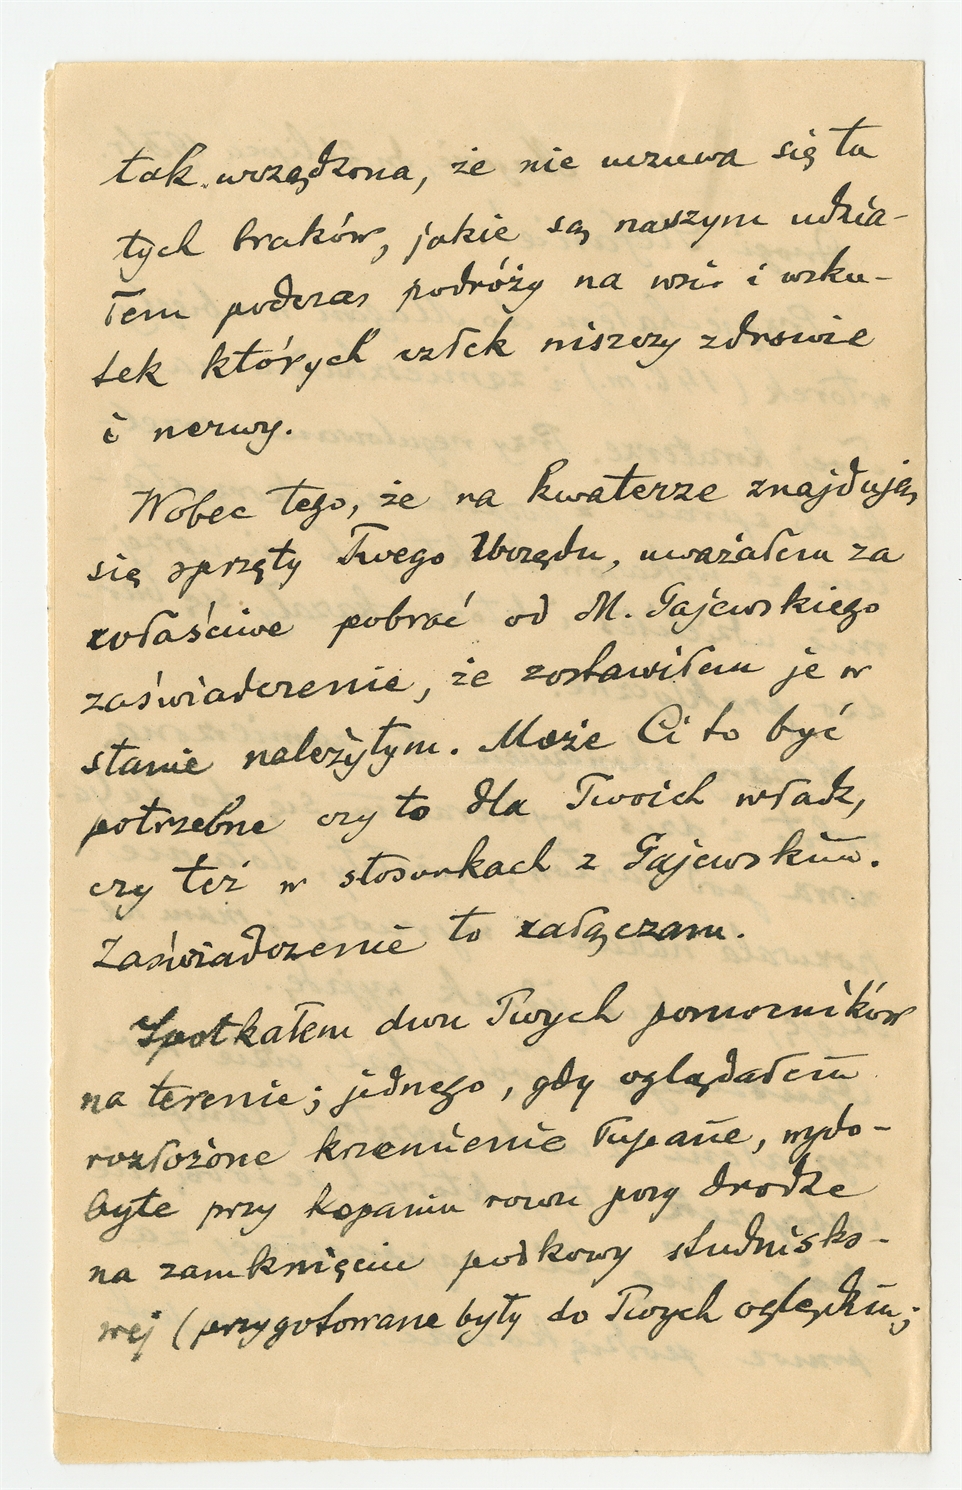 tak urządzona, że nie uczuwa się tu
tych braków, jakie są naszym udzia-
łem podczas podróży na wsi i wsku-
tek których człek niszczy zdrowie
i nerwy.
Wobec tego, że na kwaterze znajdują
się sprzęty Twego Urzędu, uważałem za
właściwe pobrać od M. Gajewskiego
zaświadczenie, że zostawiłem je w
stanie należytym. Może Ci to być
potrzebne czy to dla Twoich władz,
czy też w stosunkach z Gajewskim.
Zaświadczenie to załączam.
Spotkałem dwu Twych pomocników
na terenie; jednego, gdy oglądałem
rozłożone krzemienie łupane, wydo-
byte przy kopaniu rowu przy drodze
na zamknięciu podkowy studnisko-
wej (przygotowane były do Twych oględzin;